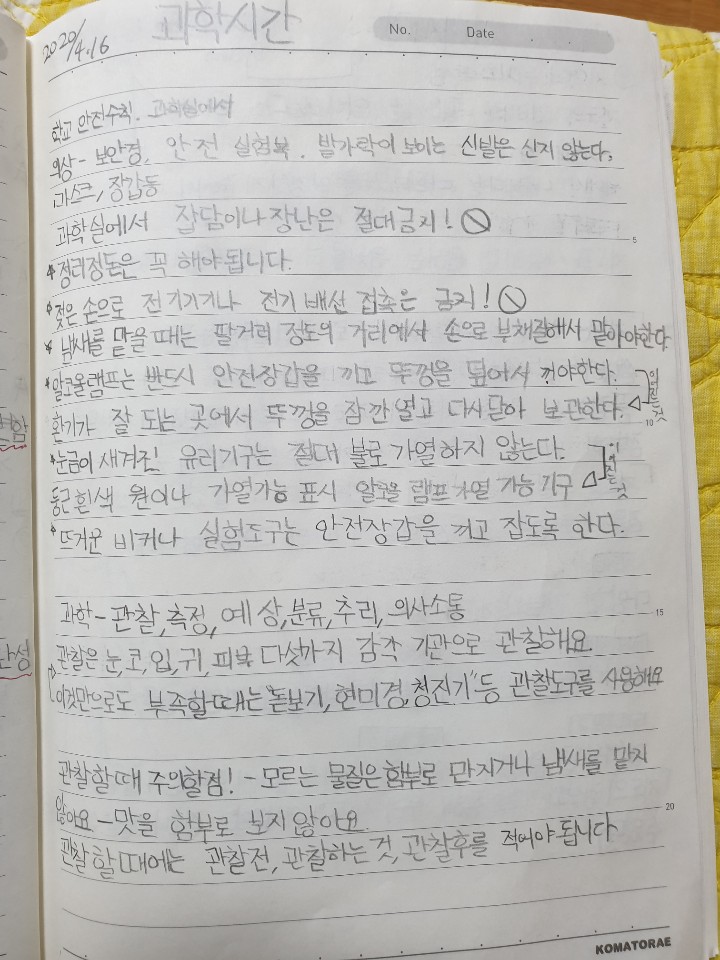 과학시간
No. Date
2020/4.16
학교 안전수칙. 과학실에서
의상 - 보안경, 안전 실험복. 발가락이 보이는 신발은 신지 않는다,
마스크, 장갑등
과학실에서 잡담이나 장난은 절대금지!
정리정돈은 꼭 해야됩니다.
5
젖은 손으로 전기기기거나 전기 배선 접촉은 금지!
냄새를 맡을때는 팔거리 정도의 거리에서 손으로 부채질해서 맡아야한다
알코올램프는 반드시 안전장갑을 끼고 뚜껑을 덮어서 꺼야한다.
환기가 잘 되는 곳에서 뚜껑을 잠깐 열고 다시닫아 보관한다.
10
눈금이 새겨진! 유리기구는 절대 불로 가열하지 않는다.
둥근 흰색 원이나 가열가능 표시 알코올 램프 가열 가능 기구
뜨거운 비커나 실험도구는 안전장갑을 끼고 잡도록 한다.
과학 - 관찰, 측정, 예상, 분류, 추리, 의사소통
15
관찰은 눈, 코, 입, 귀, 피부 다섯까지 감각 기관으로 관찰해요.
이것만으로도 부족할때는 "돋보기, 현미경, 청진기" 등 관찰도구를 사용해요
관찰할때 주의할점! - 모르는 물질은 함부로 만지거나 냄새를 맡지
않아요 - 맛을 함부로 보지 않아요
20
관찰할때에는 관찰전, 관찰하는 것, 관찰후를 적어야 됩니다
KOMATORAE